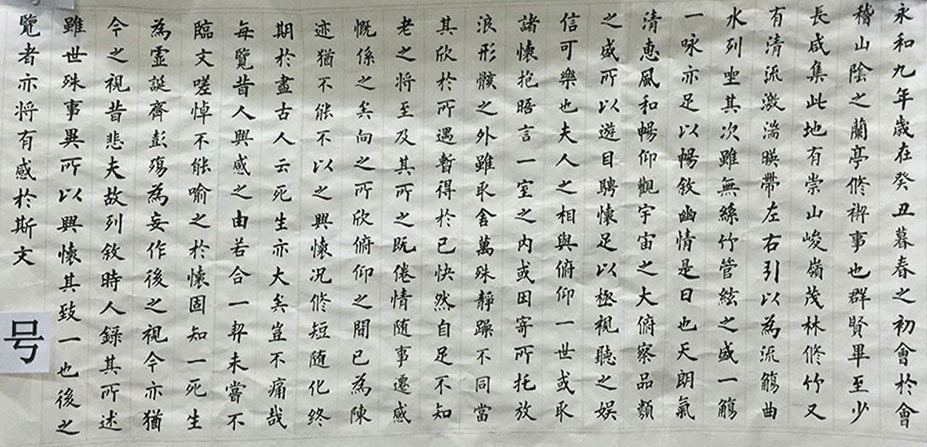 永和九年歲在癸丑暮春之初會於會
稽山陰之蘭亭修禊事也群賢畢至少
長咸集此地有崇山峻嶺茂林修竹又
有清流激湍暎帶左右引以為流觴曲
水列坐其次雖無絲竹管絃之盛一觴
一咏亦足以暢敘幽情是日也天朗氣
清惠風和暢仰觀宇宙之大俯察品類
之盛所以遊目騁懷足以極視聽之娛
信可樂也夫人之相與俯仰一世或取
諸懷抱晤言一室之內或因寄所托放
浪形骸之外雖取舍萬殊靜躁不同當
其欣於所遇暫得於己快然自足不知
老之將至及其所之既倦情隨事遷感
慨係之矣向之所欣俯仰之間已為陳
迹猶不能不以之興懷況修短隨化終
期於盡古人云死生亦大矣豈不痛哉
每覽昔人興感之由若合一契未嘗不
臨文嗟悼不能喻之於懷固知一死生
為虛誕齊彭殤為妄作後之視今亦猶
今之視昔悲夫故列敘時人錄其所述
雖世殊事異所以興懷其致一也後之
覽者亦將有感於斯文
号